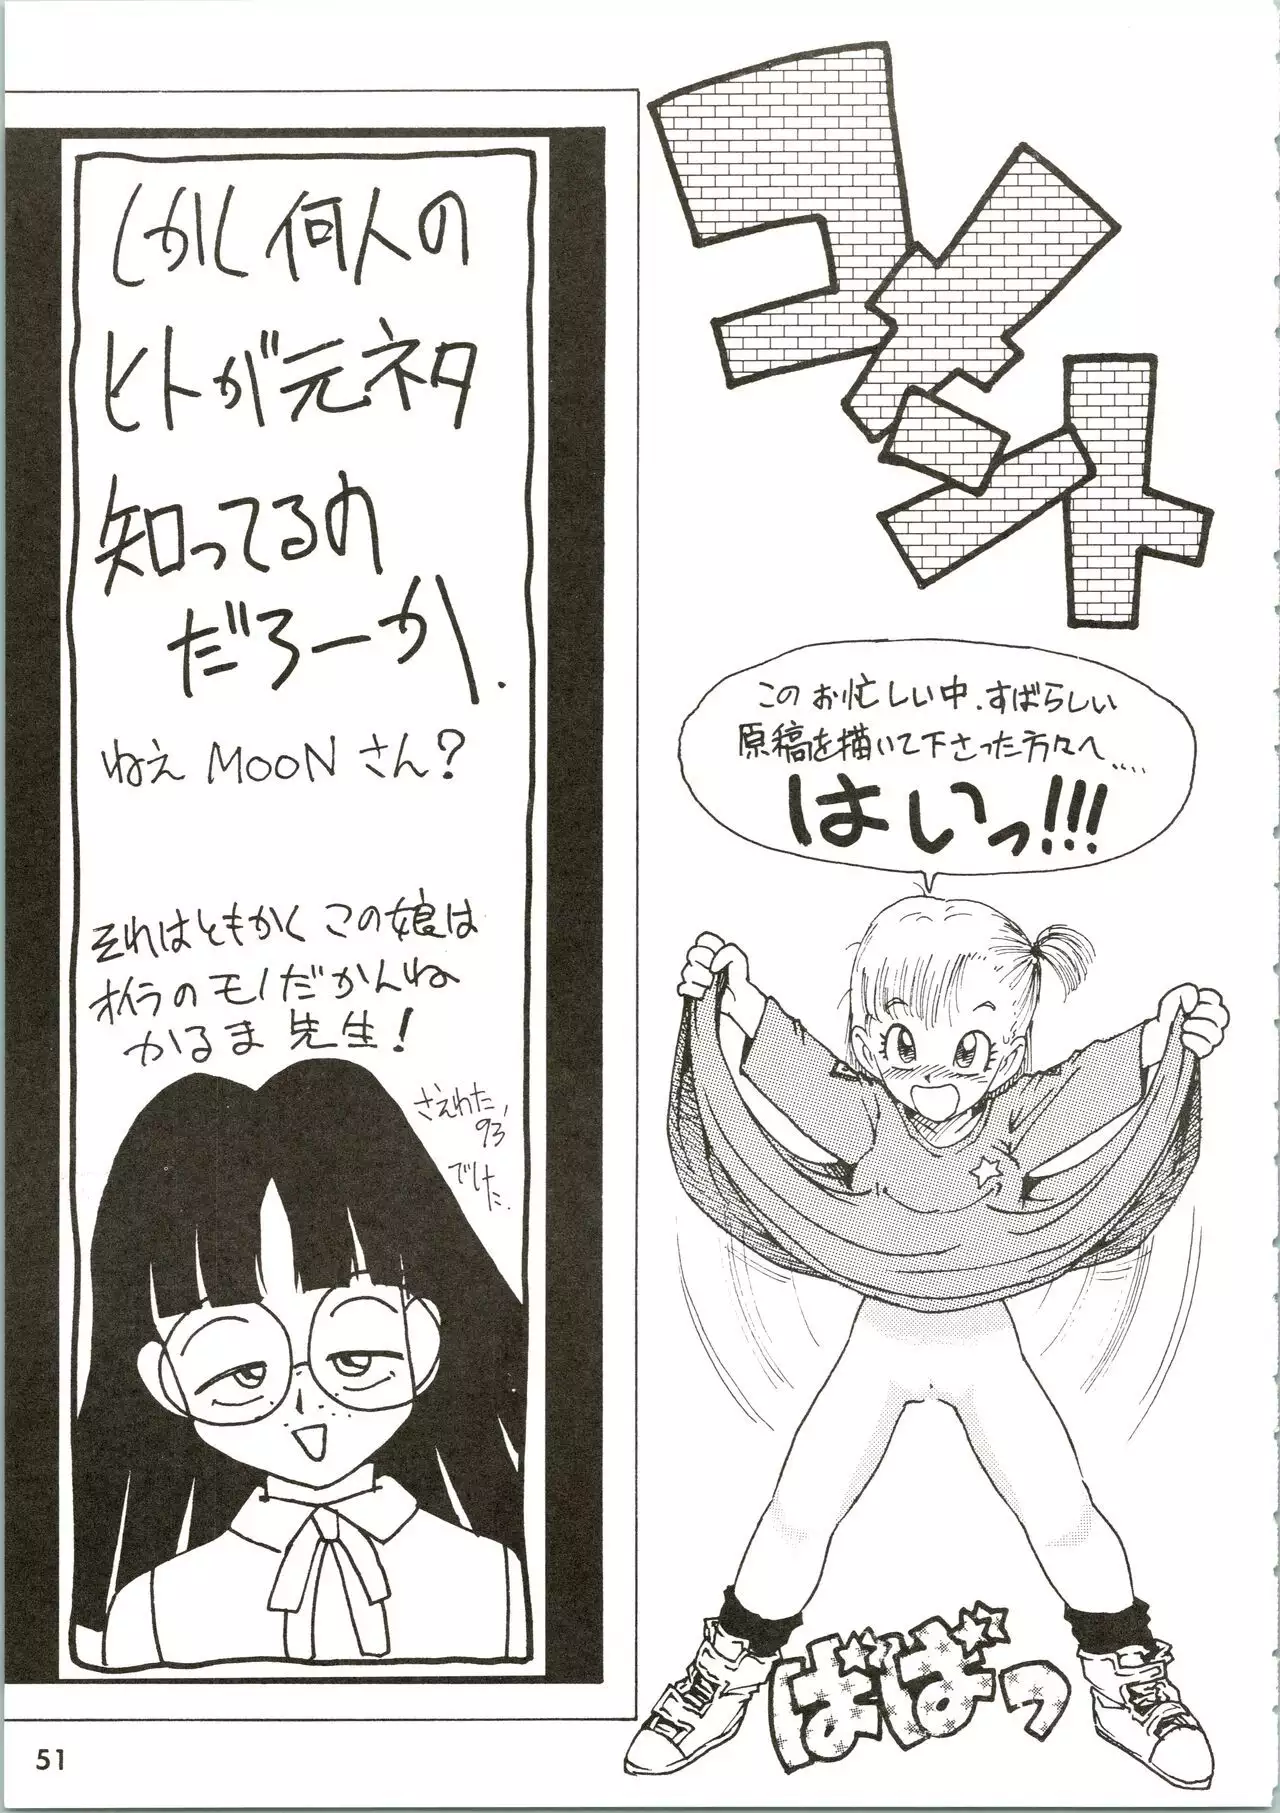 コメント
この お忙しい中、すばらしい
原稿を描いて下さった方々へ.....
はいっ!!!
ばばっ
しかし何人の
ヒトが元ネタ
知ってるの
だろーか.
ねえ MOONさん?
それはともかく この娘は
オイラのモノだかんね
かるま 先生!
さえわた
93'
でした.
51